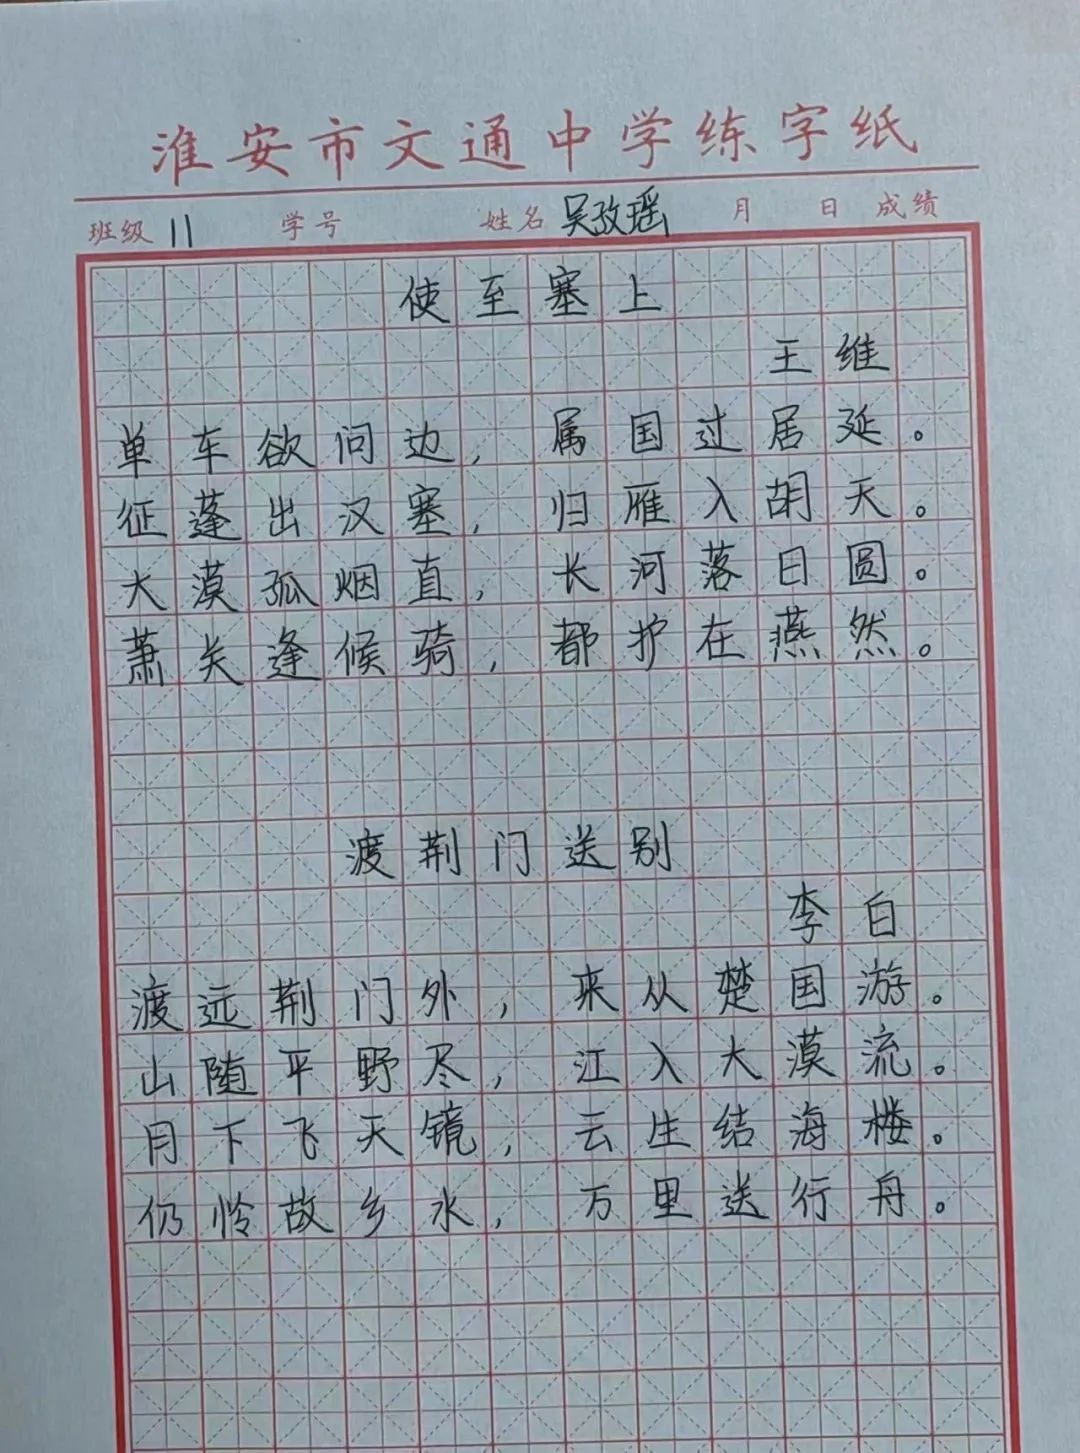 淮安市文通中学练字纸
班级 11 学号 姓名 吴孜瑶 月 日 成绩
使至塞上
王维
单车欲问边，属国过居延。
征蓬出汉塞，归雁入胡天。
大漠孤烟直，长河落日圆。
萧关逢候骑，都护在燕然。
渡荆门送别
李白
渡远荆门外，来从楚国游。
山随平野尽，江入大漠流。
月下飞天镜，云生结海楼。
仍怜故乡水，万里送行舟。